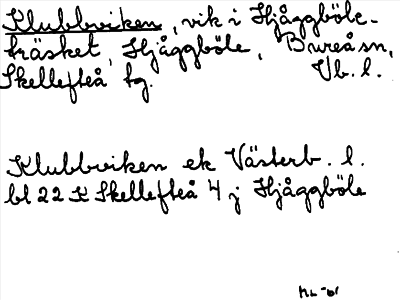 Klubbviken, vik i Hjåggböle-
träsket, Hjåggböle, Bureå sn,
Skellefteå tg. Vb. l.
Klubbviken ek Västerb. l.
bl 22 K Skellefteå 4 j Hjåggböle